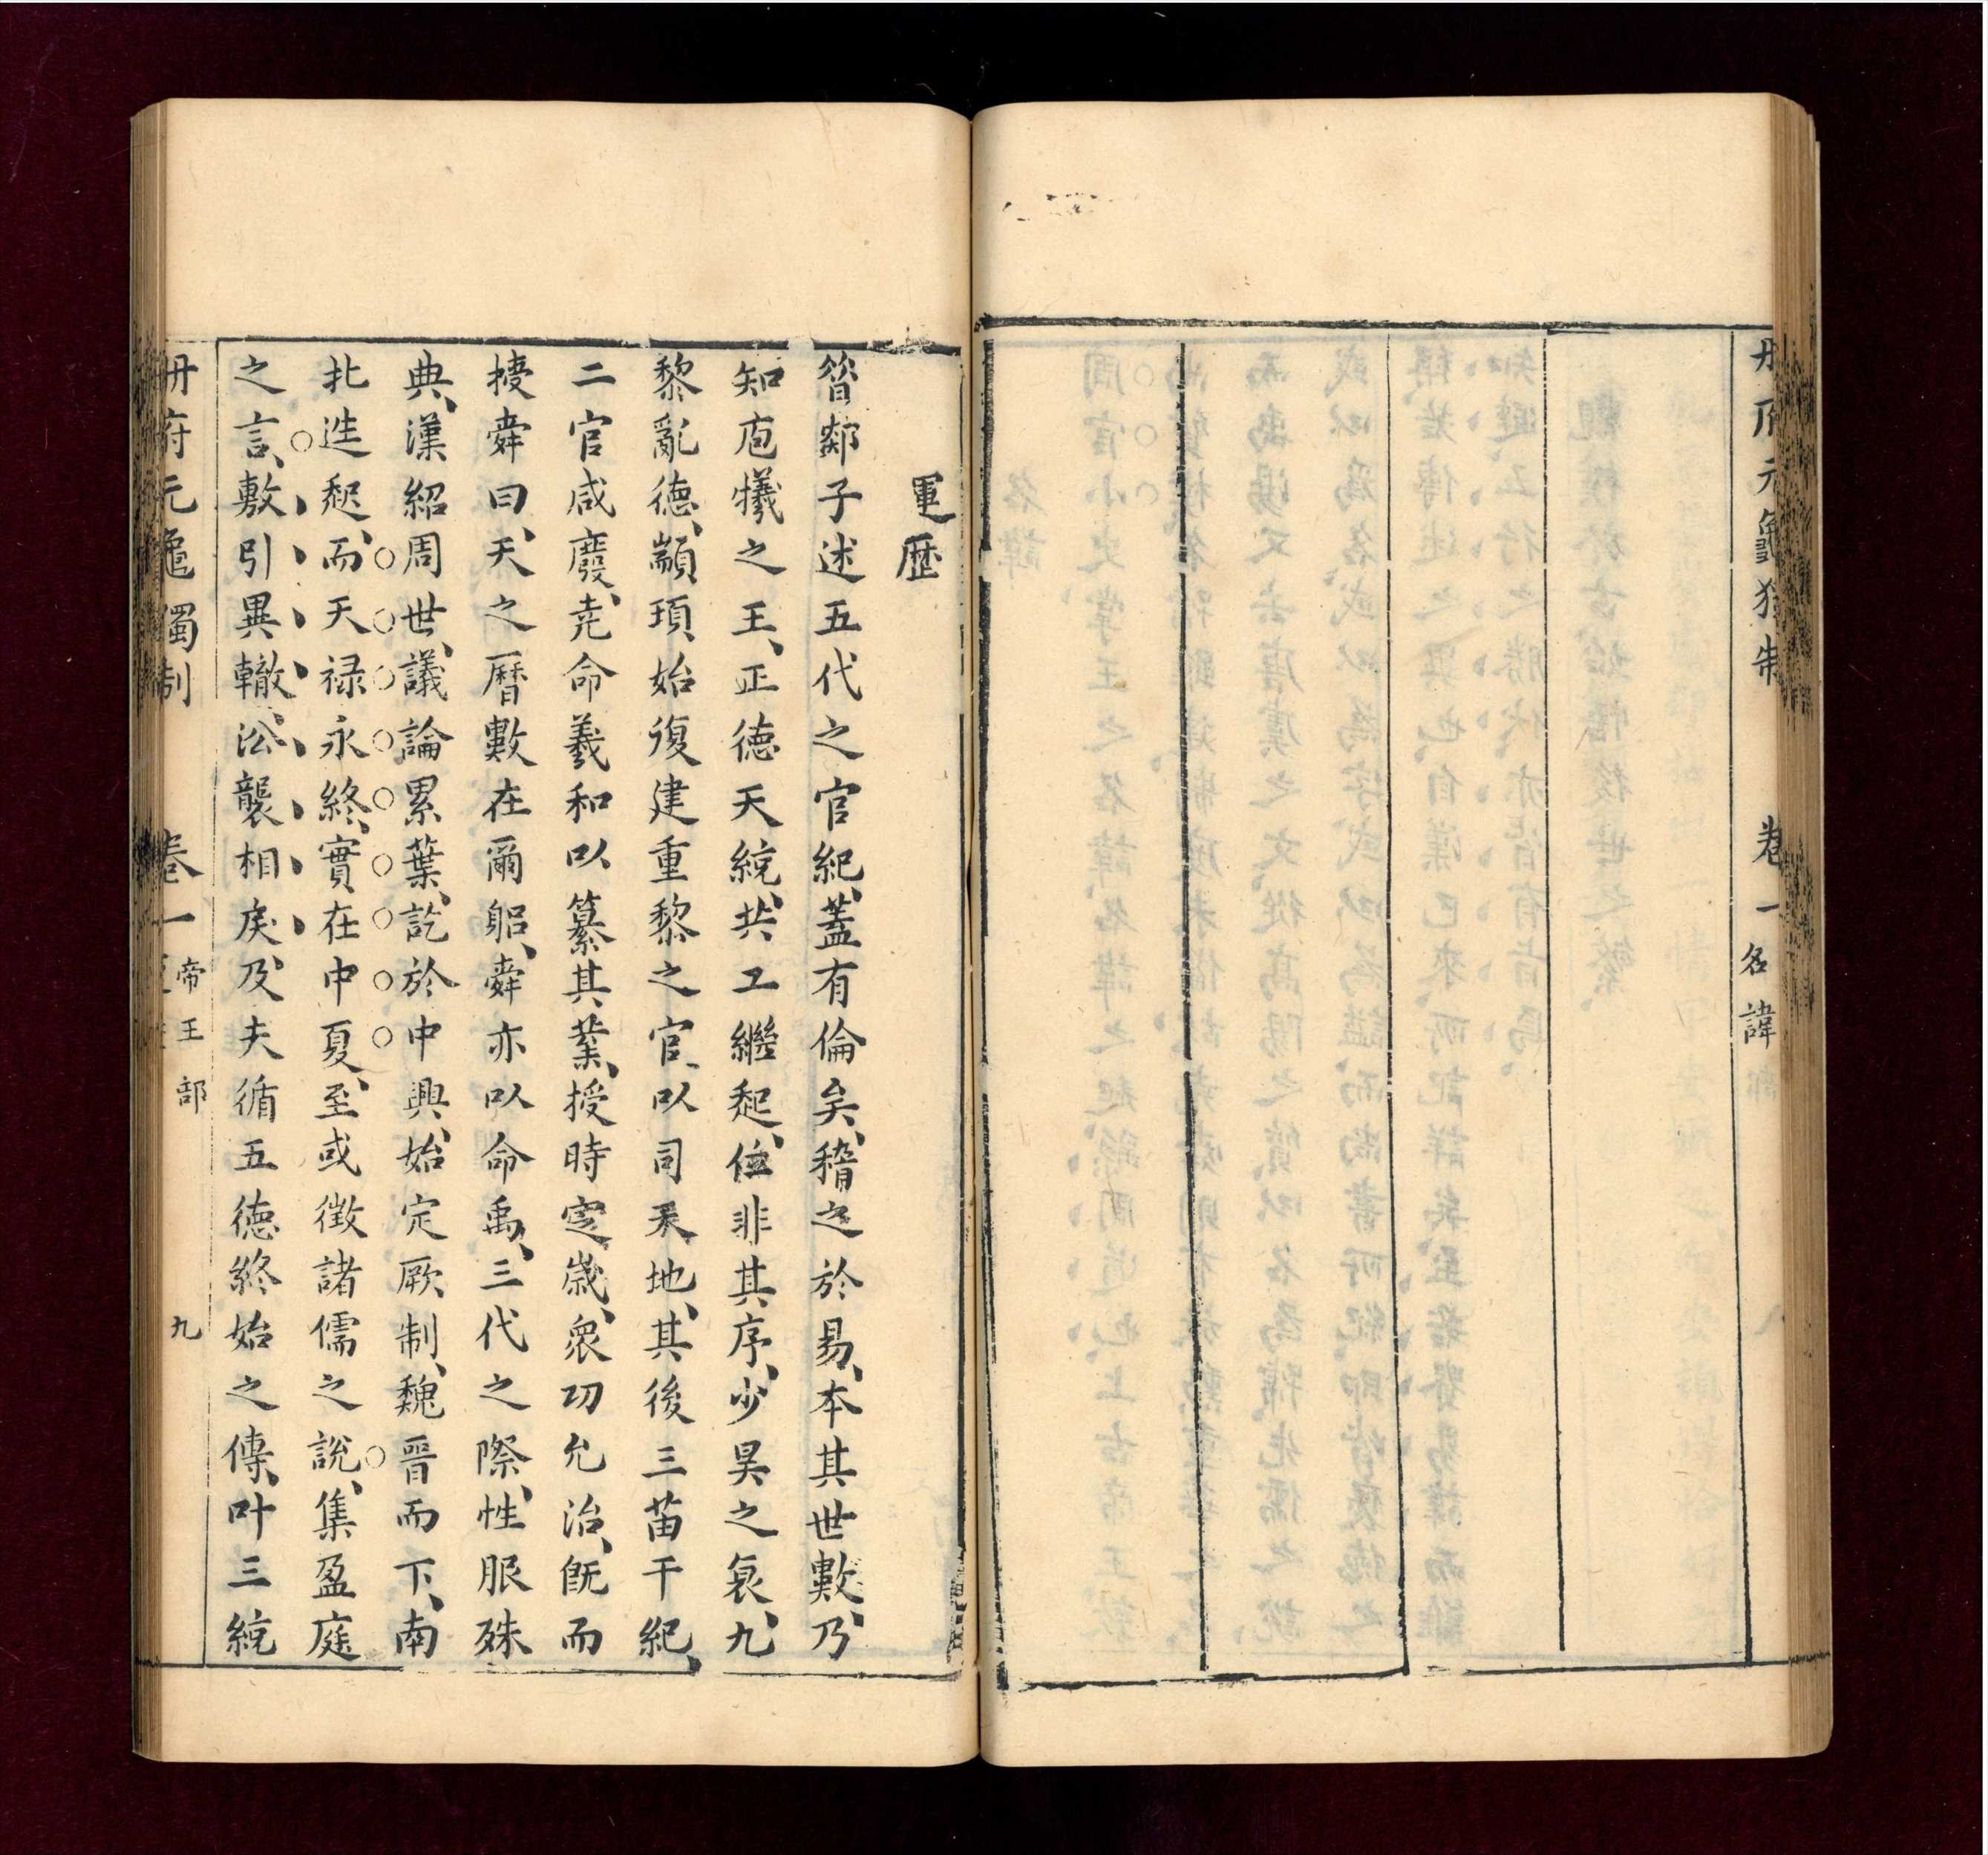 册府元龜獨制　卷一　名諱
運歷
昝郯子述五代之官紀、蓋有倫矣、稽之於易、本其世數、乃
知庖犧之王、正德天統、共工繼起、位非其序、少昊之衰、九
黎亂德、顓頊始復建重黎之官、以司天地、其後三苗干紀、
二官咸廢、堯命羲和以纂其業、授時定歲、衆功允治、旣而
授舜曰、天之曆數在爾躬、舜亦以命禹、三代之際、性服殊
典、漢紹周世、議論累葉、訖於中興、始定厥制、魏晉而下、南
北迭起、而天禄永終、實在中夏、至或徴諸儒之說、集盈庭
之言、敷引異轍、沿襲相戾、及夫循五德終始之傳、叶三統
册府元龜獨制　卷一　帝王部　九